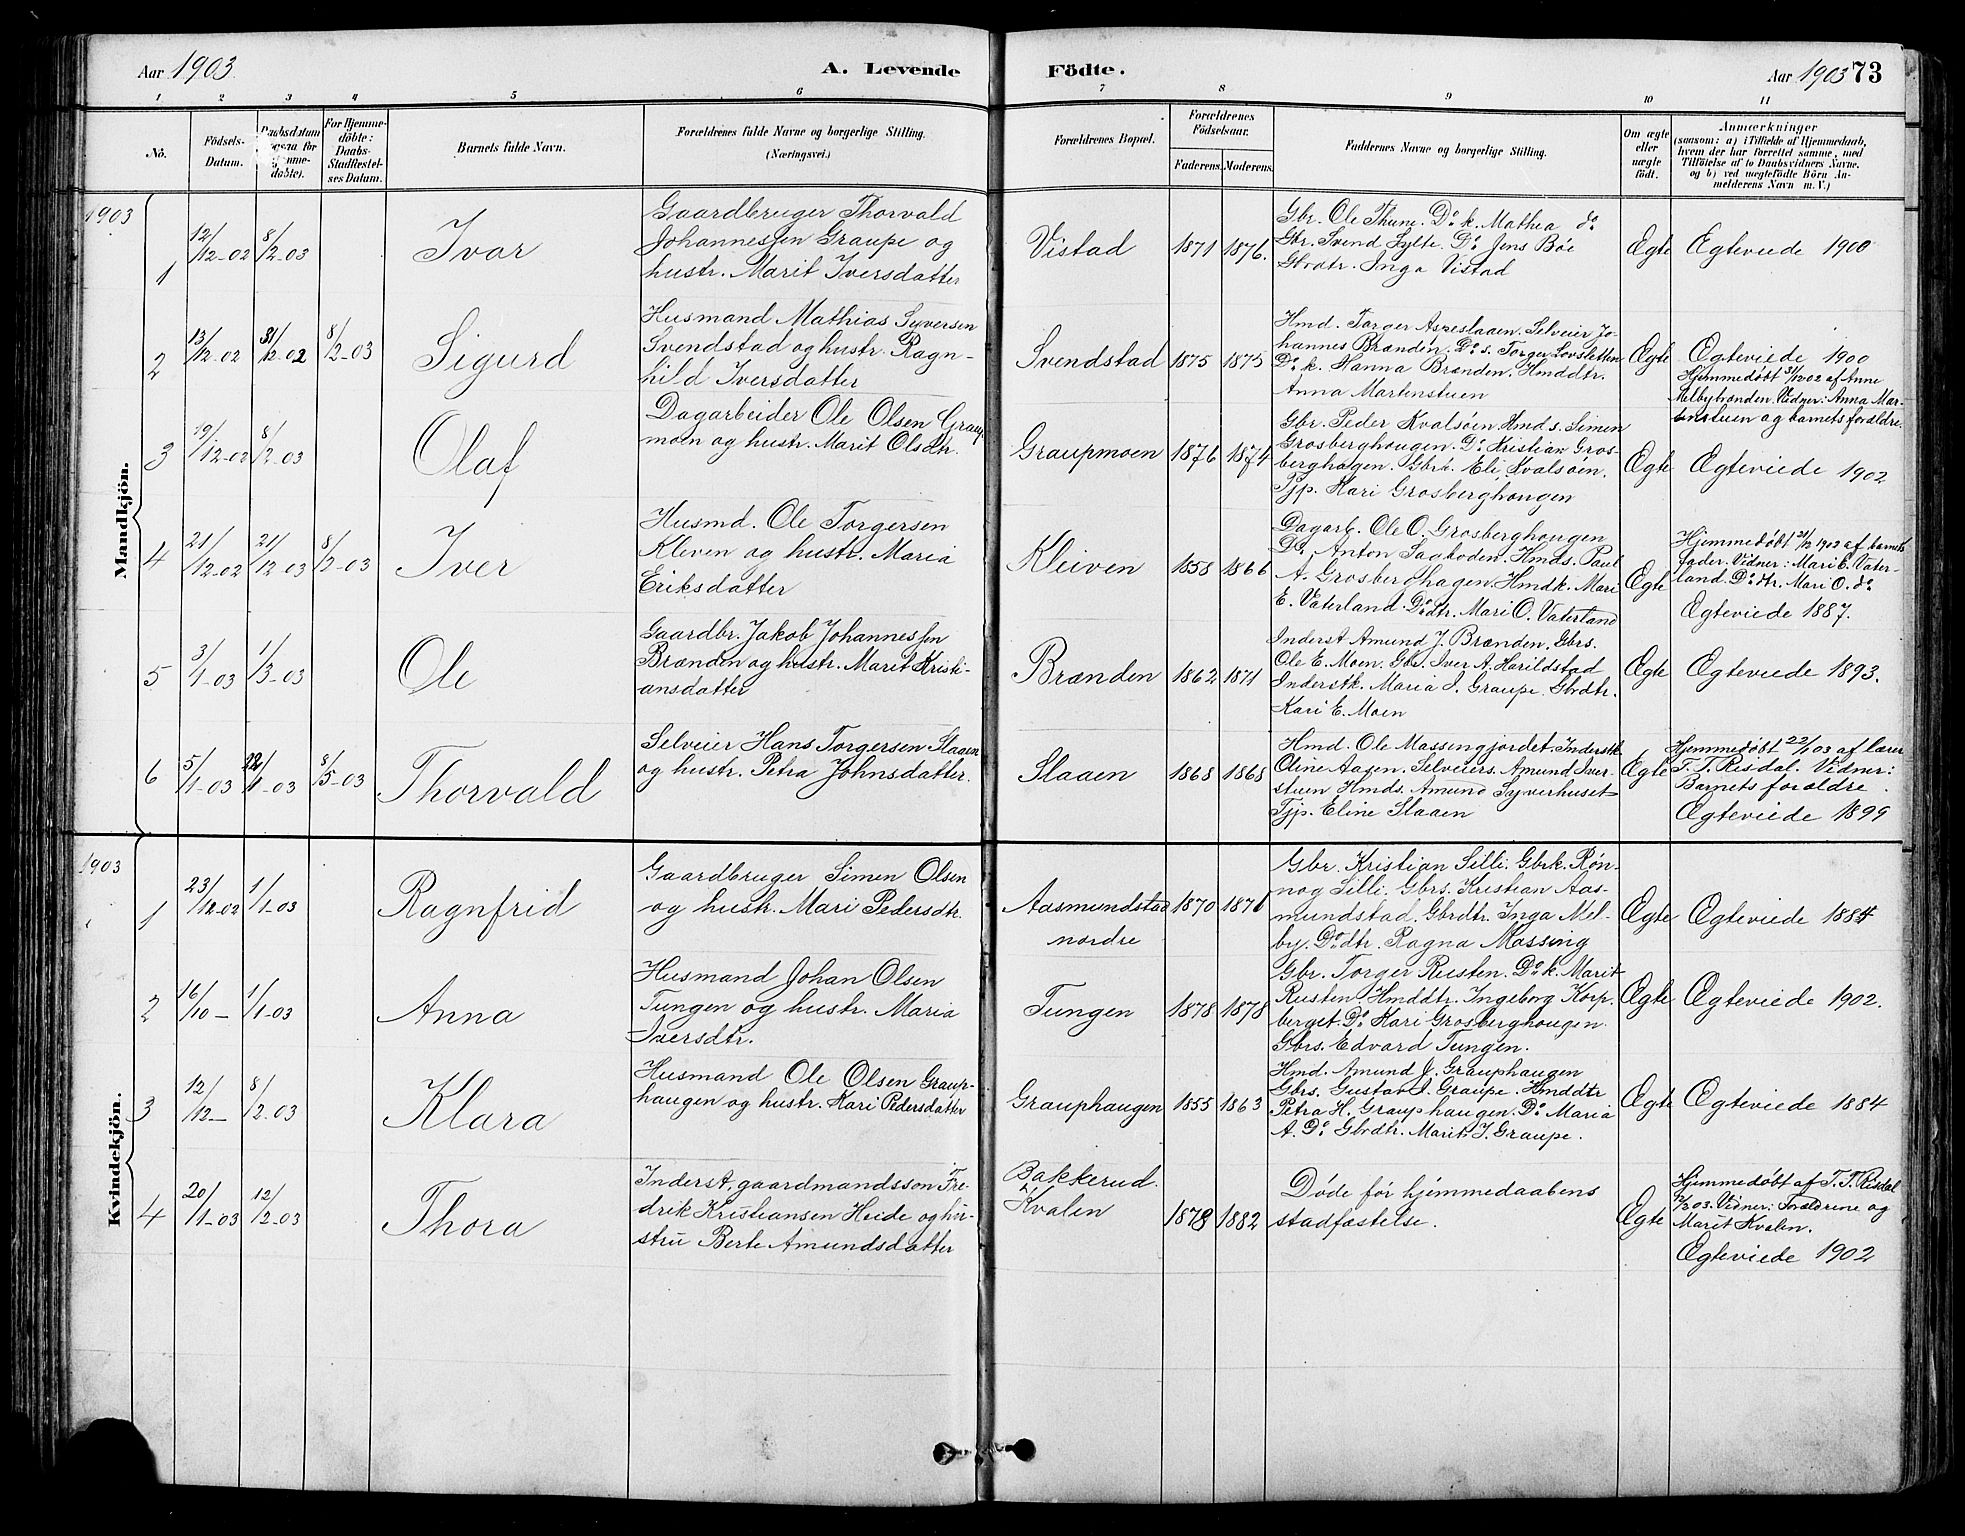 Aar 1903
A. Levende
Födte.
Aar 1903 73
1 2 3 4 5 6 7 8 9 10 11
Nô.
Födsels-
Datum.
For Hjemme-
döbte:
Daabs-
Stadfæstel-
ses Datum.
Barnets fulde Navn.
Forældrenes fulde Navne og borgerlige Stilling.
(Næringsvei.)
Forældrenes Bopæl.
Forældrenes
Födselsaar.
Faderens. Moderens.
Faddernes Navne og borgerlige Stilling.
Om ægte
eller
uægte
födt.
Anmærkninger
(saasom: a) i Tilfælde af Hjemmedaab,
hvem der har forrettet samme, med
Tilföielse af to Daabsvidners Navne.
og b) ved uægtefödte Börn An-
melderens Navn m. V.)
Mandkjön.
1903
1
12/12-02
8/2-03
Ivar
Gaardbruger Thorvald
Johannessen Graupe og
hustr. Marit Iversdatter
Vistad
1871
1876.
Gbr. Ole Thune. Do k. Mathea do
Gbr. Svend Sylte. Do Jens Böe
Gbrdtr. Inga Vistad
Ægte
Ægteviede 1900
2
13/12-02
31/12-02
8/2-03
Sigurd
Husmand Mathias Syversen
Svendstad og hustr. Ragn-
hild Iversdatter
Svendstad
1875
1875
Hmd. Torger Aspeslaaen. Selveier Jo-
hannes Brænden. Do s. Torger Lovsletten
Do k. Hanna Brænden. Hmddtr.
Anna Martinstuen
Ægte
Ægteviede 1900
Hjemmedøbt 31/12 02 af Anne
Melbybrænden. Vidner: Anna Mar-
tinstuen og barnets forældre.
3
19/12-02
8/2-03
Olaf
Dagarbeider Ole Olsen Graup-
moen og hustr. Marit Olsdtr.
Graupmoen
1876
1874
Gbr. Peder Kvalsöen Hmds. Simen
Grosberghougen. Do Kristian Gros-
berghagen. Gbrk. Eli Kvalsöen.
Pjp. Kari Grosberghougen
Ægte
Ægteviede 1902
4
21/12-02
21/12-03
8/2-03
Iver
Husmd. Ole Torgersen
Kleven og hustr. Maria
Eriksdatter
Kleiven
1858
1866
Dagarb. Ole O. Grosberghougen
Do Anton Sagboden. Hmds. Paul
A. Grosberghagen Hmdk. Mari
E. Vaterland. Do dtr. Mari O. Vaterland
Ægte
Hjemmedøbt 21/12 1902 af barnets
fader. Vidner: Mari E. Vater-
land. Do dtr. Mari O. do
Ægteviede 1887.
5
3/1-03
1/3-03
Ole
Gaardbr. Jakob Johannessen
Brænden og hustr. Marit Kristi-
ansdatter
Brænden
1862
1871
Inderst Amund J. Brænden. Gbrs.
Ole E. Moen. Gbr. Iver A. Harildstad
Inderstk. Maria I. Graupe. Gbrdtr.
Kari E. Moen
Ægte
Ægteviede 1893.
6
5/1-03
22/1-03
8/5-03
Thorvald
Selveier Hans Torgersen Slaaen
og hustr. Petra Johnsdatter.
Slaaen
1868
1868
Hmd. Ole Massengjordet. Inderstk
Oline Aagen. Selveiers. Amund Iver-
stuen Hmds. Amund Syverhuset
Tjp. Eline Slaaen
Ægte
Hjemmedøbt 22/1 03 af lærer
T. T. Risdal. Vidner:
Barnets forældre.
Ægteviede 1899
Kvindekjön.
1903
1
23/12-02
1/1-03
Ragnfrid
Gaardbruger Simen Olsen
og hustr. Mari Pedersdtr.
Aasmundstad
nordre
1870
1876
Gbr. Kristian Silli. Gbrk. Rön-
nog Silli. Gbrs. Kristian Aas-
mundstad. Gbrdtr. Inga Mel-
by. Do dtr. Ragna Massing
Ægte
Ægteviede
2
16/10-
1/1-03
Anna
Husmand Johan Olsen
Tungen og hustr. Maria
Iversdtr.
Tungen
1878
1878
Gbr. Torger Rusten. Do k. Marit
Rusten Hmddtr. Ingeborg Korp-
berget. Do Kari Grosberghougen.
Gbrs. Edvard Tungen.
Ægte
Ægteviede 1902.
3
12/12-
8/2-03
Klara
Husmand Ole Olsen Graup-
haugen og hustr. Kari Pedersdatter
Grauphaugen
1855
1863
Hmd. Amund J. Grauphaugen
Gbrs. Gustav I. Graupe. Hmddtr
Petra H. Grauphaugen. Do Maria
A. Do Gbrdtr. Marit I. Graupe.
Ægte
Ægteviede 1884
4
20/1-03
12/2-03
Thora
Inderst, gaardmandssøn Fre-
drik Kristiansen Heide og hu-
stru Berte Amundsdatter
Bakkerud.
Kvalen
1878
1882
Døde før hjemmedaabens
stadfæstelse.
Ægte
Hjemmedøbt af T. T. Risdal
12/2 03. Vidner: Forældrene og
Marit Kvalen.
Ægteviede 1902